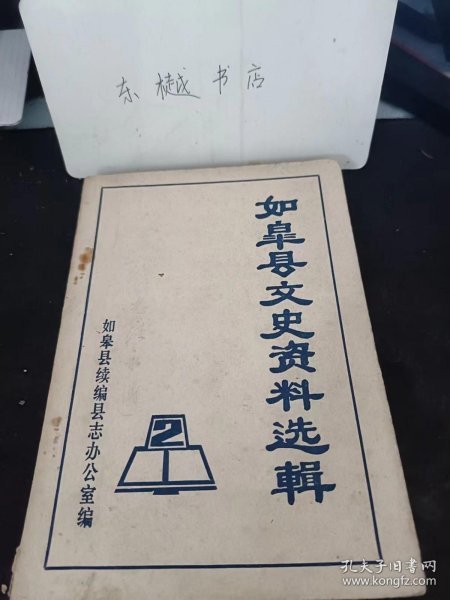 东樾书店
如皋县文史资料选輯
如皋县续编县志办公室编
2
孔夫子旧书网
www.kongfz.com